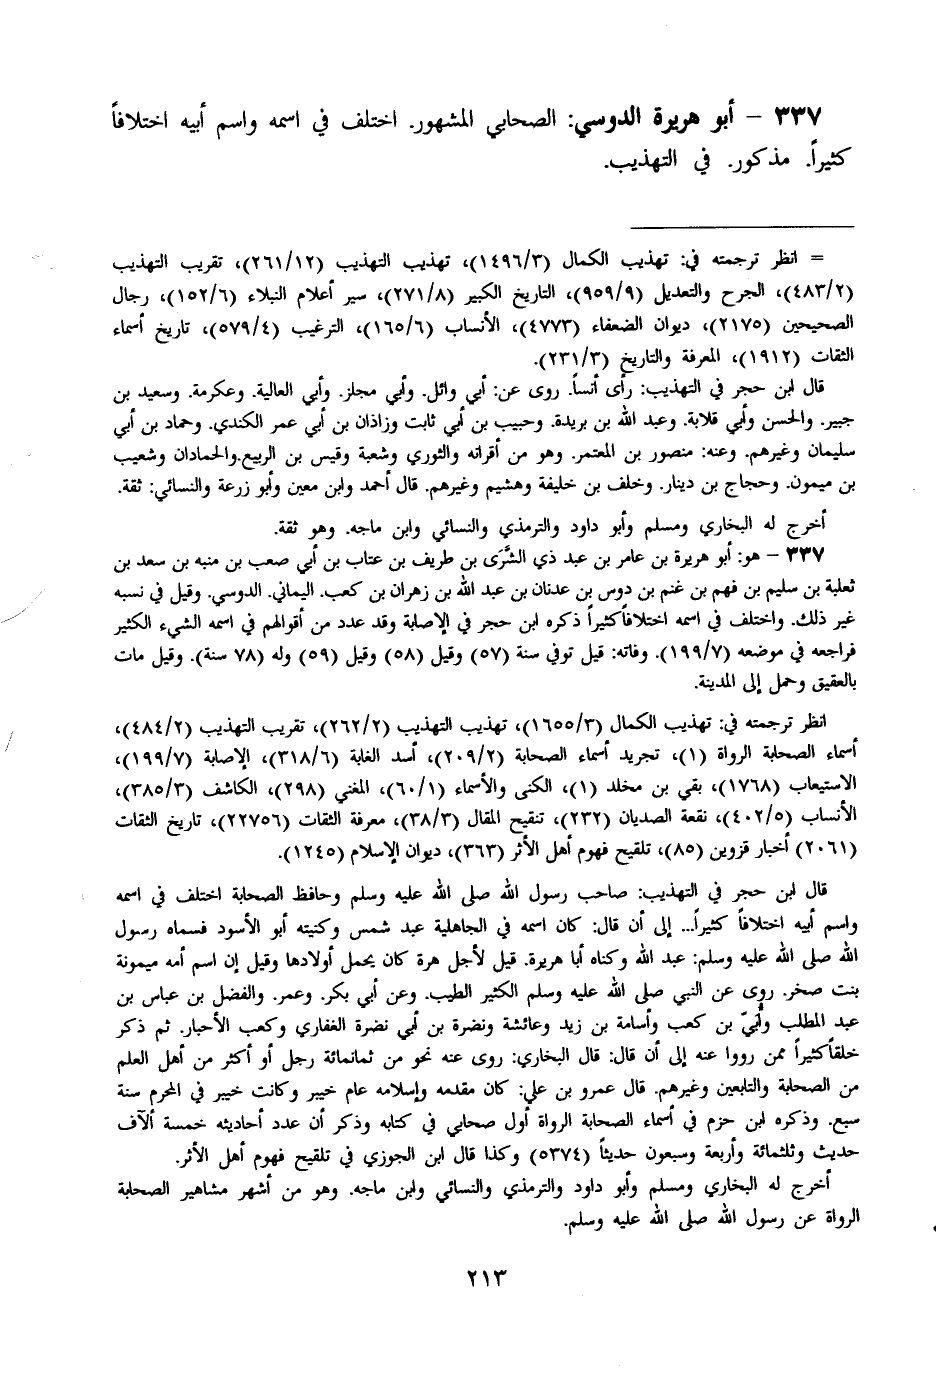 ٣٣٧ – أبو هريرة الدوسي: الصحابي المشهور. اختلف في اسمه واسم أبيه اختلافاً
كثيراً. مذكور. في التهذيب.
= انظر ترجمته في: تهذيب الكمال (١٤٩٦/٣)، تهذيب التهذيب (٢٦١/١٢)، تقريب التهذيب
(٤٨٣/٢)، الجرح والتعديل (٩٥٩/٩)، التاريخ الكبير (٢٧١/٨)، سير أعلام النبلاء (١٥٢/٦)، رجال
الصحيحين (٢١٧٥)، ديوان الضعفاء (٤٧٧٣)، الأنساب (١٦٥/٦)، الترغيب (٥٧٩/٤)، تاريخ أسماء
الثقات (١٩١٢)، المعرفة والتاريخ (٢٣١/٣).
قال ابن حجر في التهذيب: رأى أنساً. روى عن: أبي وائل. وأبي مجلز. وأبي العالية. وعكرمة. وسعيد بن
جبير. والحسن وأبي قلابة. وعبد الله بن بريدة. وحبيب بن أبي ثابت وزاذان بن أبي عمر الكندي. وحماد بن أبي
سليمان وغيرهم. وعنه: منصور بن المعتمر. وهو من أقرانه والثوري وشعبة وقيس بن الربيع.والحمادان وشعيب
بن ميمون. وحجاج بن دينار. وخلف بن خليفة وهشيم وغيرهم. قال أحمد وابن معين وأبو زرعة والنسائي: ثقة.
أخرج له البخاري ومسلم وأبو داود والترمذي والنسائي وابن ماجه. وهو ثقة.
٣٣٧ – هو: أبو هريرة بن عامر بن عبد ذي الشَّرَى بن طريف بن عتاب بن أبي صعب بن منبه بن سعد بن
ثعلبة بن سليم بن فهم بن غنم بن دوس بن عدنان بن عبد الله بن زهران بن كعب. اليماني. الدوسي. وقيل في نسبه
غير ذلك. واختلف في اسمه اختلافاًكثيراً ذكره ابن حجر في الإصابة وقد عدد من أقوالهم في اسمه الشيء الكثير
فراجعه في موضعه (١٩٩/٧). وفاته: قيل توفي سنة (٥٧) وقيل (٥٨) وقيل (٥٩) وله (٧٨ سنة). وقيل مات
بالعقيق وحمل إلى المدينة.
انظر ترجمته في: تهذيب الكمال (١٦٥٥/٣)، تهذيب التهذيب (٢٦٢/٢)، تقريب التهذيب (٤٨٤/٢)،
أسماء الصحابة الرواة (١)، تجريد أسماء الصحابة (٢٠٩/٢)، أسد الغابة (٣١٨/٦)، الإصابة (١٩٩/٧)،
الاستيعاب (١٧٦٨)، بقي بن مخلد (١)، الكنى والأسماء (٦٠/١)، المغني (٢٩٨)، الكاشف (٣٨٥/٣)،
الأنساب (٤٠٢/٥)، نقعة الصديان (٢٣٢)، تنقيح المقال (٣٨/٣)، معرفة الثقات (٢٢٧٥٦)، تاريخ الثقات
(٢٠٦١) أخبار قزوين (٨٥)، تلقيح فهوم أهل الأثر (٣٦٣)، ديوان الإسلام (١٢٤٥).
قال ابن حجر في التهذيب: صاحب رسول الله صلى الله عليه وسلم وحافظ الصحابة اختلف في اسمه
واسم أبيه اختلافاً كثيراً... إلى أن قال: كان اسمه في الجاهلية عبد شمس وكنيته أبو الأسود فسماه رسول
الله صلى الله عليه وسلم: عبد الله وكناه أبا هريرة. قيل لأجل هرة كان يحمل أولادها وقيل إن اسم أمه ميمونة
بنت صخر. روى عن النبي صلى الله عليه وسلم الكثير الطيب. وعن أبي بكر. وعمر. والفضل بن عباس بن
عبد المطلب وأُبيّ بن كعب وأسامة بن زيد وعائشة ونضرة بن أبي نضرة الغفاري وكعب الأحبار. ثم ذكر
خلقاًكثيراً ممن رووا عنه إلى أن قال: قال البخاري: روى عنه نحو من ثمانمائة رجل أو أكثر من أهل العلم
من الصحابة والتابعين وغيرهم. قال عمرو بن علي: كان مقدمه وإسلامه عام خيبر وكانت خيبر في المحرم سنة
سبع. وذكره ابن حزم في أسماء الصحابة الرواة أول صحابي في كتابه وذكر أن عدد أحاديثه خمسة آلآف
حديث وثلثمائة وأربعة وسبعون حديثاً (٥٣٧٤) وكذا قال ابن الجوزي في تلقيح فهوم أهل الأثر.
أخرج له البخاري ومسلم وأبو داود والترمذي والنسائي وابن ماجه. وهو من أشهر مشاهير الصحابة
الرواة عن رسول الله صلى الله عليه وسلم.
٢١٣